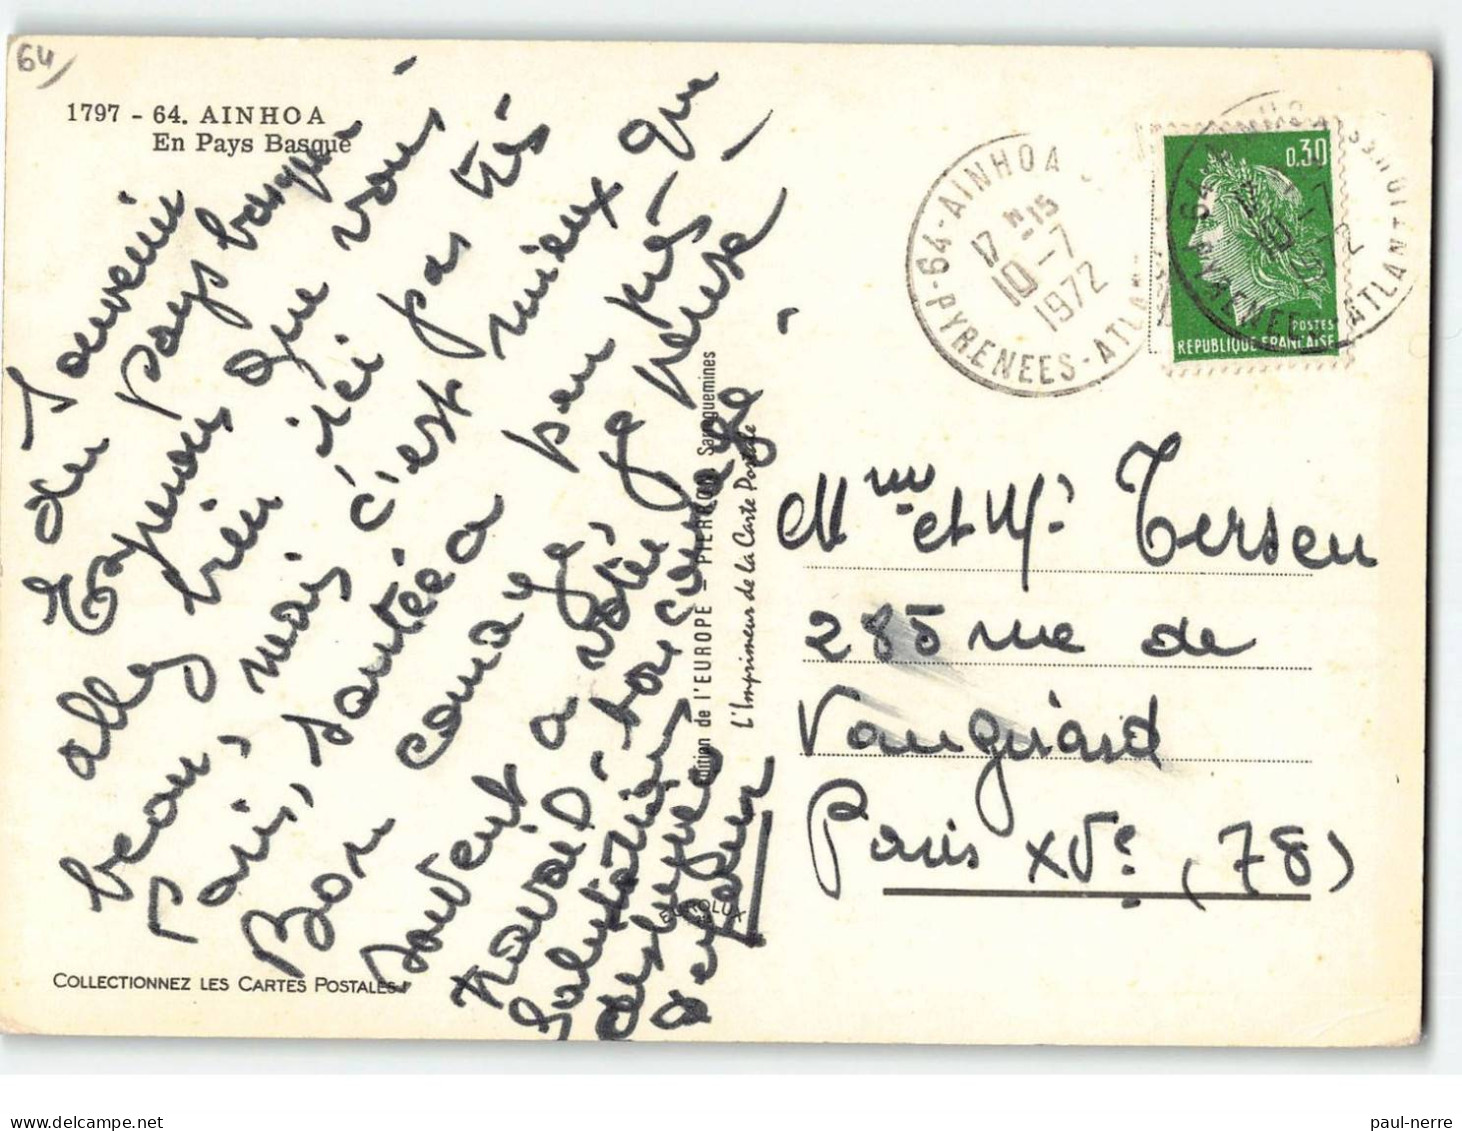 64
1797 - 64. AINHOA
En Pays Basque
Souvenir
du Pays basque
Espérons que vous
allez bien ici pas très
beau, mais c'est mieux que
Paris,
Bon courage je pense
souvent à votre
travail - bon courage
Salutations
COLLECTIONNEZ LES CARTES POSTALES
Edition de l'EUROPE - PIERRON Sarreguemines
L'Imprimeur de la Carte Postale
EUROLUX
64-AINHOA
17H15
10-7
1972
PYRENEES-ATLAN
0,30
POSTES
REPUBLIQUE FRANÇAISE
PYRENEES ATLANTIQUES
Mme et Mr Tersen
285 rue de
Vaugirard
Paris XVe (78)
paul-nerre